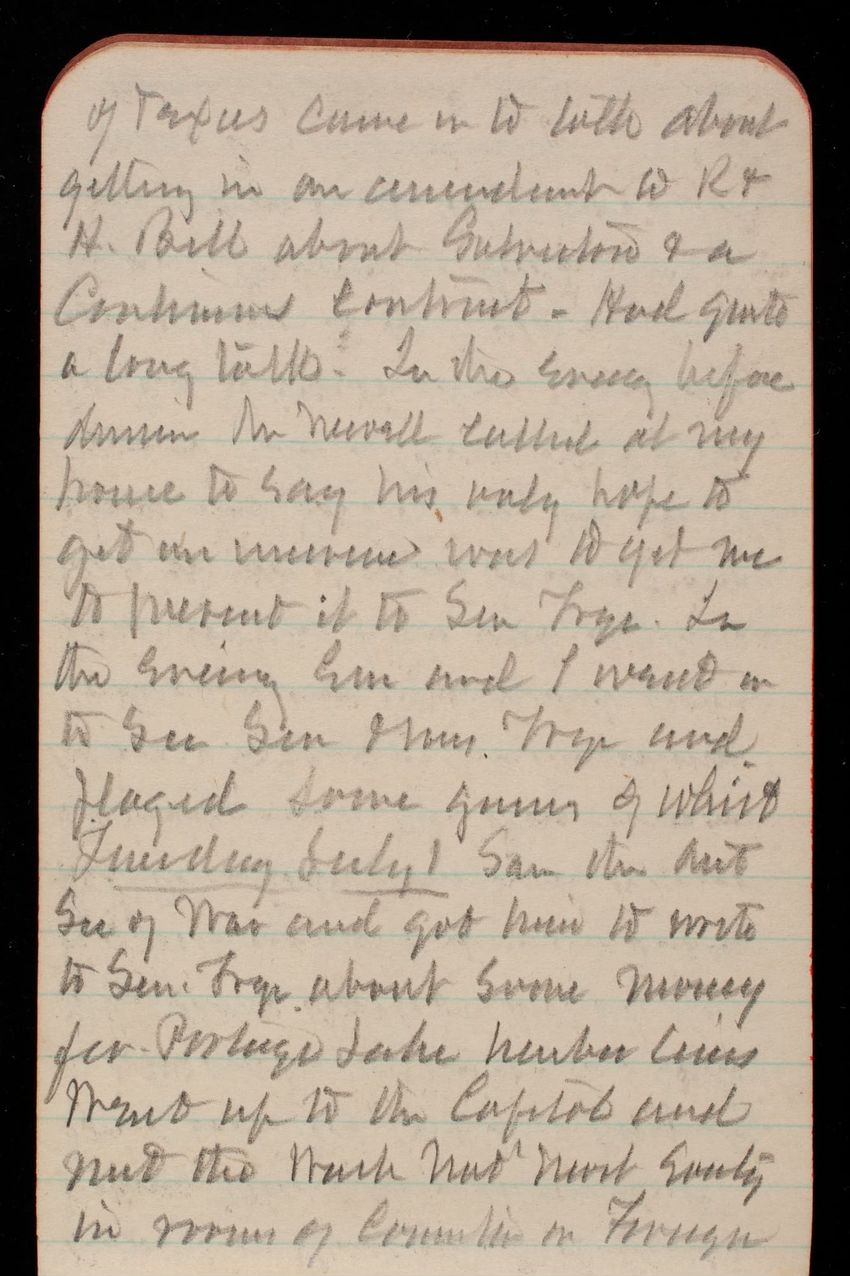 of Texas came in to talk about
getting in an amendment to R &
H. Bill about Galveston & a
Continuous Contract - Had quite
a long talk. In the evening before
dinner Mr Newell called at my
house to say his only hope to
get an increase was to get me
to present it to Sen Frye. In
the evening Em and I went in
to see Sen & Mrs. Frye and
played some games of whist
Tuesday July 1 Saw the Act
Sec of War and got him to write
to Sen. Frye about some money
for Portage Lake harbor lines
Went up to the Capitol and
met the Wash Nat Mon't Society
in room of Committee on Foreign